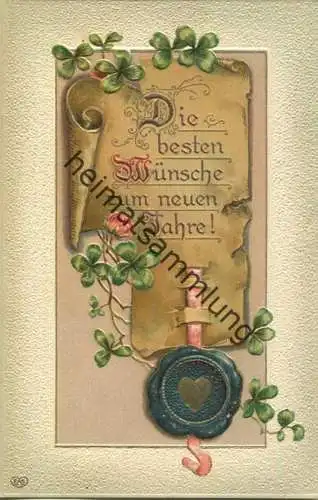 Die
besten
Wünsche
um neuen
Jahre!
heimatsammlung
EAS